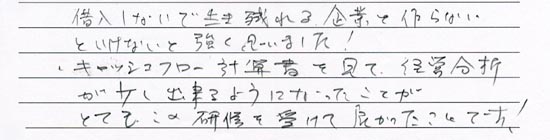 借入しないで生き残れる企業を作らない
といけないと強く思いました！
・キャッシュフロー計算書を見て、経営分析
が少し出来るようになったことが
とてもこの研修を受けて良かったことです！